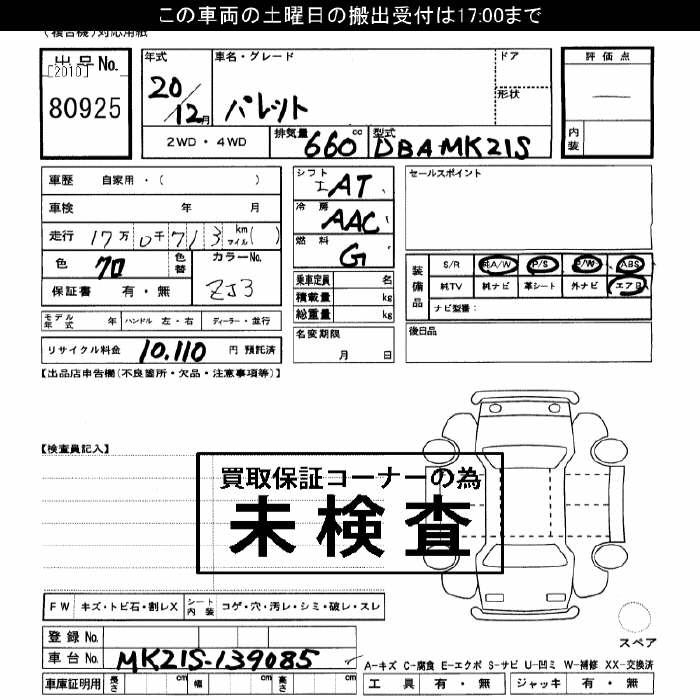 この車両の土曜日の搬出受付は17:00まで
(複合機)対応用紙
出品No.
[2010]
80925
年式
20/12月
車名・グレード
パレット
ドア
形状
評価点
内装
2WD・4WD
排気量 660 cc
型式 DBA-MK21S
車歴 自家用・( )
車検 年 月
走行 17万 0千 7 1 3 km マイル( )
色 クロ
色替
カラーNo. ZJ3
保証書 有・無
モデル年式 年
ハンドル 左・右
ディーラー・並行
リサイクル料金 10.110 円 預託済
シフト AT
冷房 AAC
燃料 G
乗車定員 名
積載量 kg
総重量 kg
名変期限
月 日
セールスポイント
装備品
S/R 純A/W P/S P/W ABS
純TV 純ナビ 革シート 外ナビ エアB
ナビ型番:
後日品
【出品店申告欄(不良箇所・欠品・注意事項等)】
【検査員記入】
買取保証コーナーの為
未検査
FW キズ・トビ石・割レX
シート内装 コゲ・穴・汚レ・シミ・破レ・スレ
登録No.
車台No. MK21S-139085
車庫証明用 長さ cm 幅 cm 高さ cm
スペア
A-キズ C-腐食 E-エクボ S-サビ U-凹ミ W-補修 XX-交換済
工具 有・無 ジャッキ 有・無